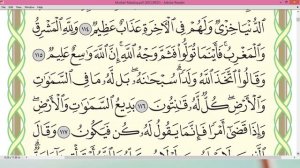 الدُّنْيَا خِزْيٌ وَلَهُمْ فِي الْآخِرَةِ عَذَابٌ عَظِيمٌ ١١٤ وَلِلَّهِ الْمَشْرِقُ
وَالْمَغْرِبُ فَأَيْنَمَا تُوَلُّوا فَثَمَّ وَجْهُ اللَّهِ إِنَّ اللَّهَ وَاسِعٌ عَلِيمٌ ١١٥
وَقَالُوا اتَّخَذَ اللَّهُ وَلَدًا سُبْحَانَهُ بَل لَّهُ مَا فِي السَّمَاوَاتِ
وَالْأَرْضِ كُلٌّ لَّهُ قَانِتُونَ ١١٦ بَدِيعُ السَّمَاوَاتِ وَالْأَرْضِ
وَإِذَا قَضَىٰ أَمْرًا فَإِنَّمَا يَقُولُ لَهُ كُن فَيَكُونُ ١١٧ وَقَالَ